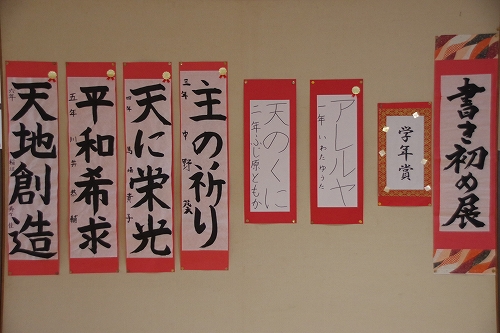 書き初め展
学年賞
アレルヤ
一年いわたゆうた
天のくに
二年ふじ原ともか
主の祈り
三年中野
天に栄光
四年
平和希求
五年川井
天地創造
六年